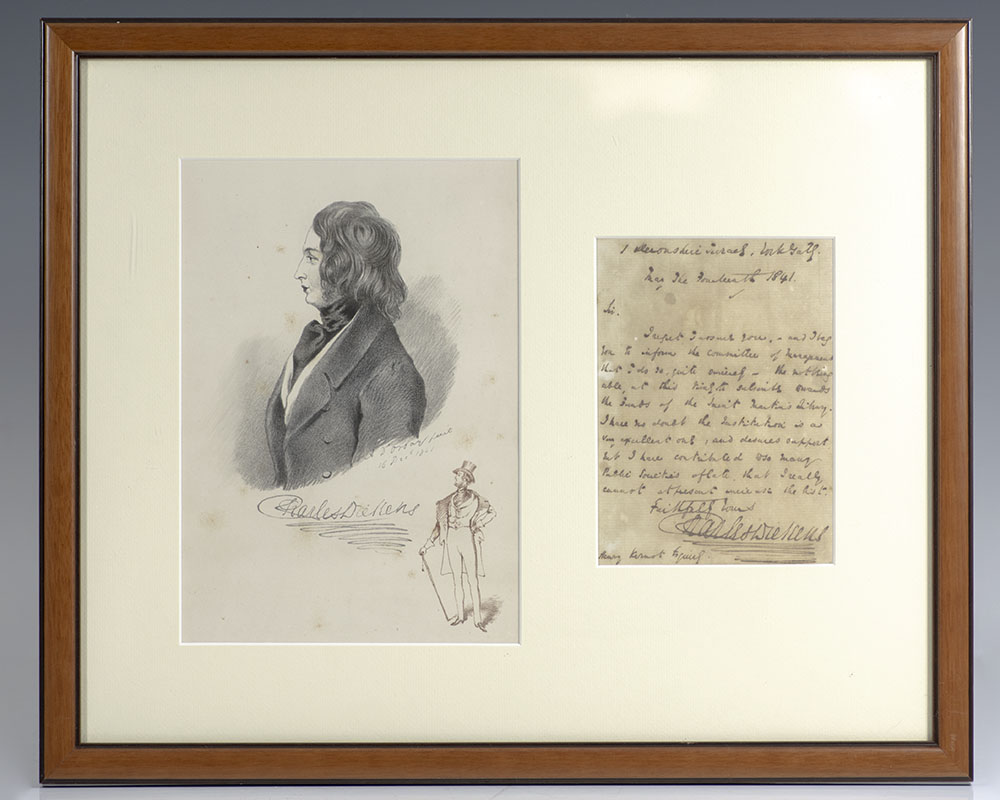 D'Orsay fecit
16 Dec 1841
Charles Dickens
1 Devonshire Terrace, York Gate.
May The Fourteenth 1841.
Sir.
I regret I cannot – and I beg
you to inform the committee of management
that I do so, quite sincerely – the not being
able, at this time, to towards
the Funds of the Saint Martin's Library.
I have no doubt the Institution is a
very excellent one, and deserves support
but I have contributed to so many
Public Societies of late, that I really
cannot at present increase the list.
Faithfully Yours
Charles Dickens
Henry Kernot Esquire.